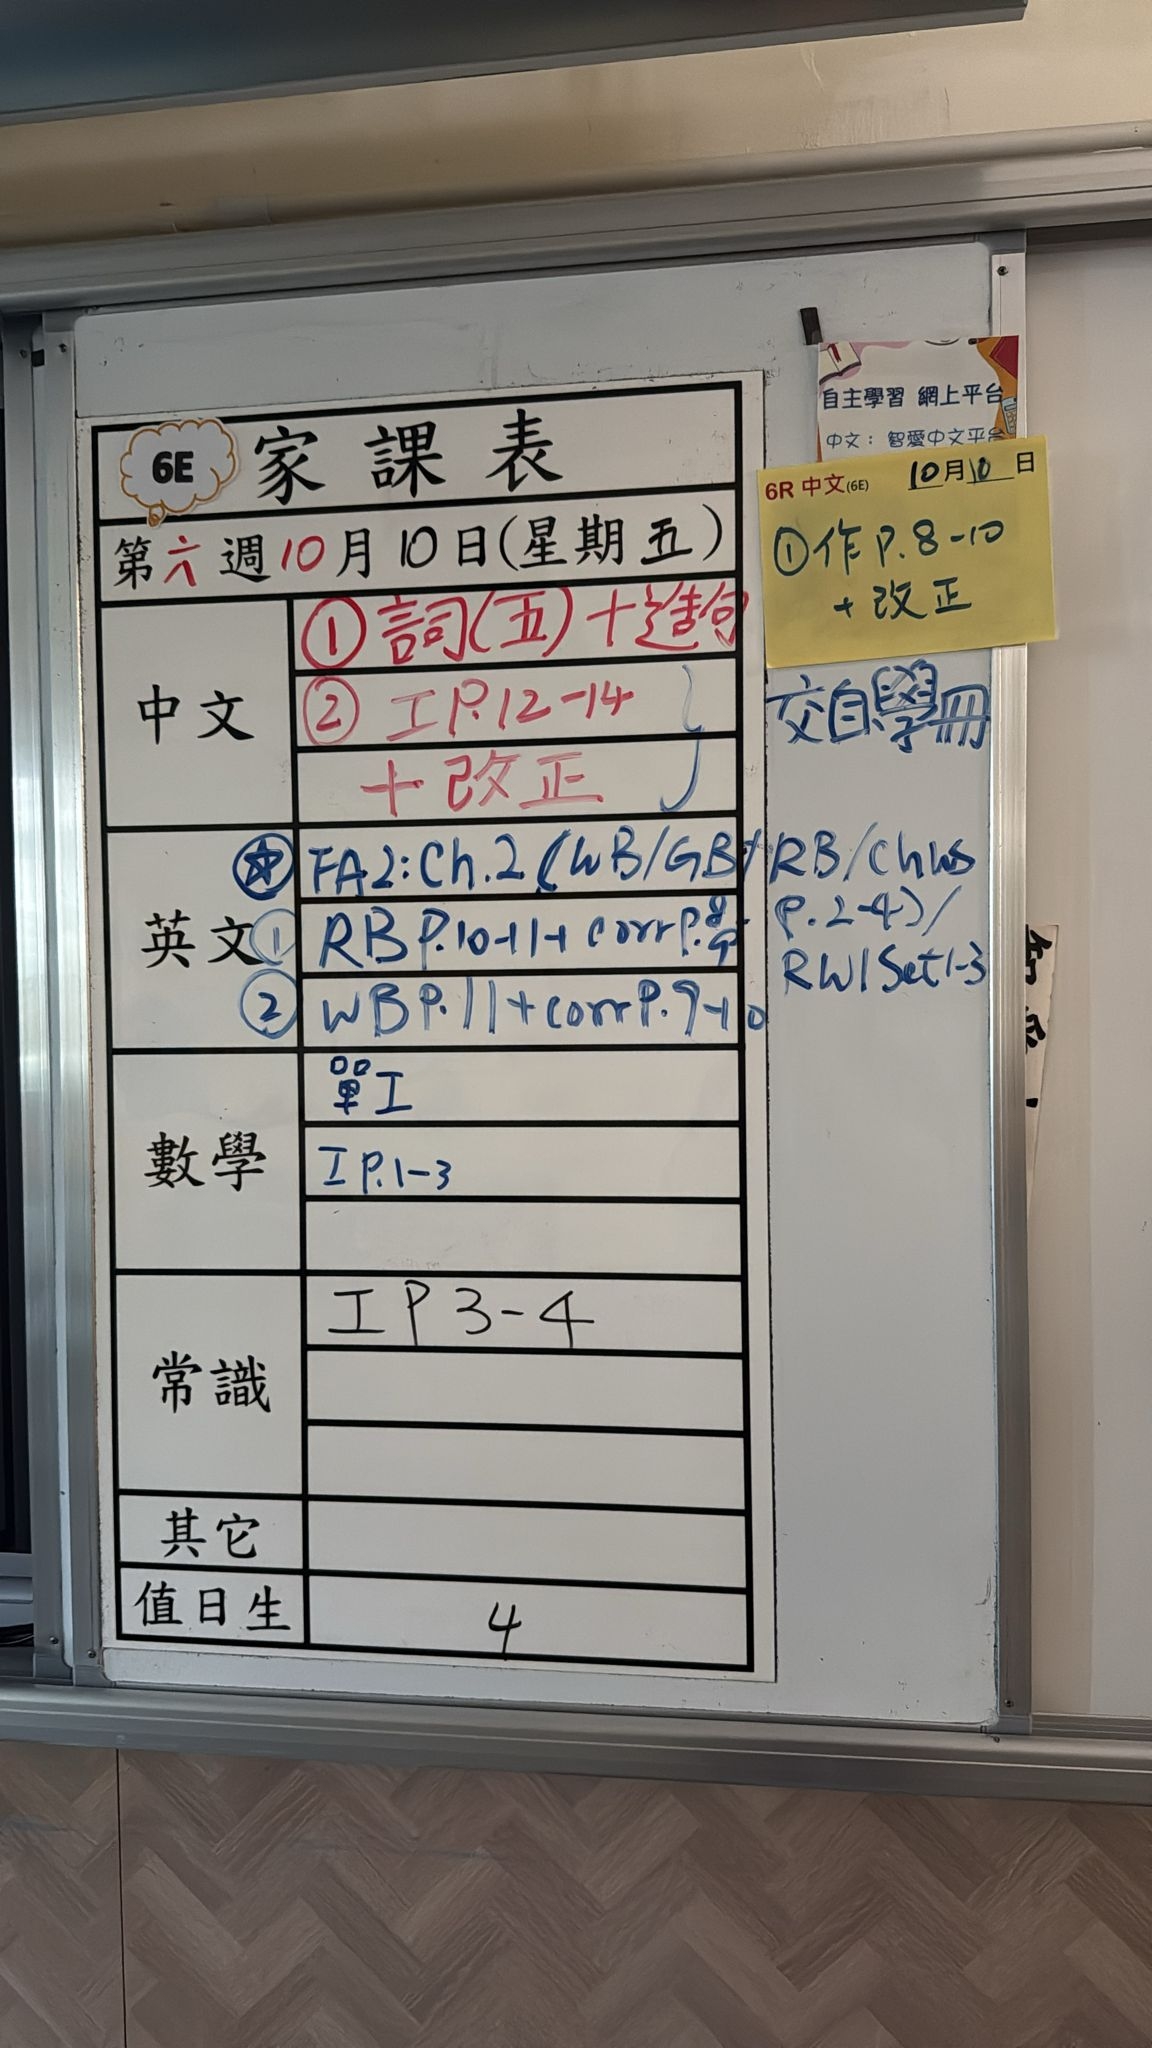 自主學習 網上平台
中文： 智愛中文平台
6E 家課表
6R 中文(6E) 10月10日
① 作 P.8-10
+ 改正
第六週10月10日(星期五)
中文
① 詞(五)+造句
② 工 P.12-14
+ 改正
交自學冊
英文
FA2: Ch.2 (WB/GB/RB/Ch WS
P.2-4)/
RW1 Set 1-3
① RB P.10-11+ corr P.
② WB P.11+corr P.9-10
數學
單工
工 P.1-3
常識
工 P 3-4
其它
值日生 4